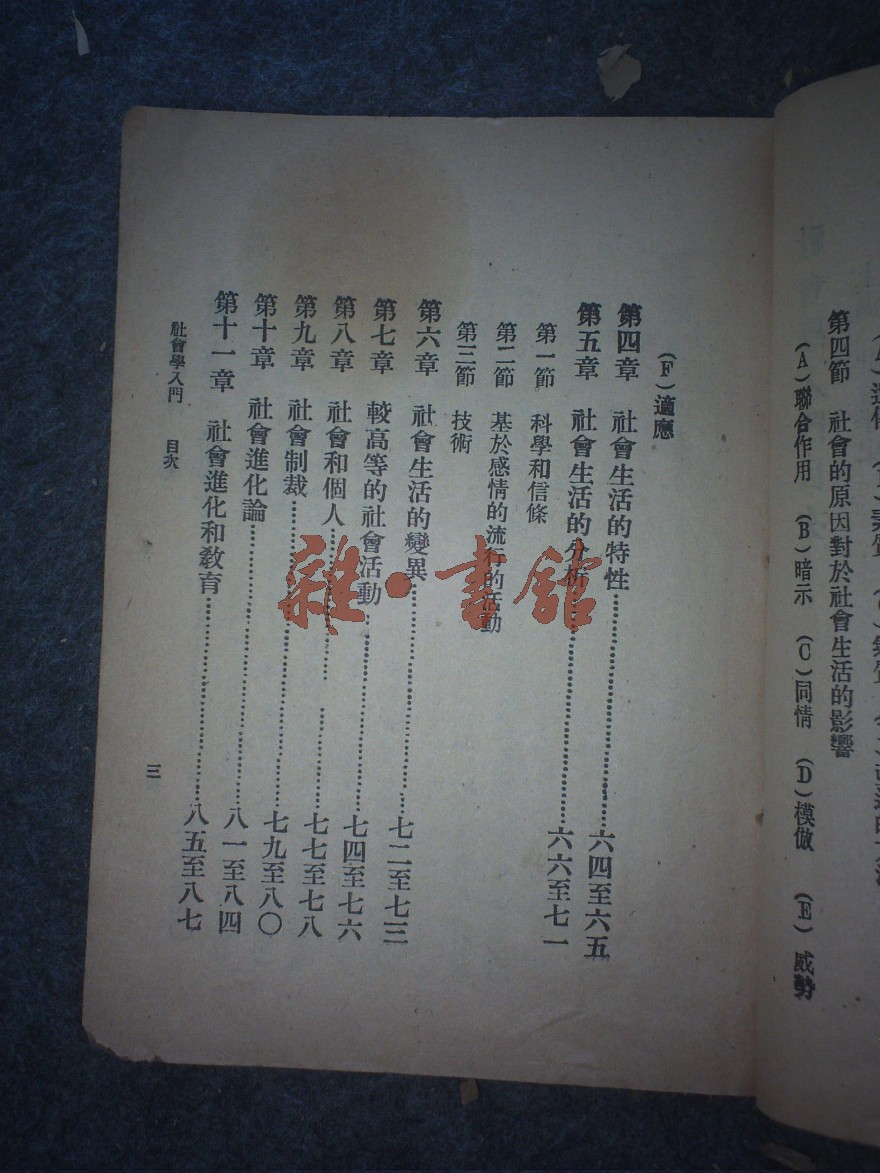 第四節 社會的原因對於社會生活的影響
(A)聯合作用 (B)暗示 (C)同情 (D)模倣 (E)威勢
(F)適應
第四章 社會生活的特性……………………六四至六五
第五章 社會生活的分析……………………六六至七一
第一節 科學和信條
第二節 基於感情的流行的活動
第三節 技術
第六章 社會生活的變異……………………七二至七三
第七章 較高等的社會活動……………………七四至七六
第八章 社會和個人……………………七七至七八
第九章 社會制裁……………………七九至八〇
第十章 社會進化論……………………八一至八四
第十一章 社會進化和教育……………………八五至八七
社會學入門 目次
三
雜·書館